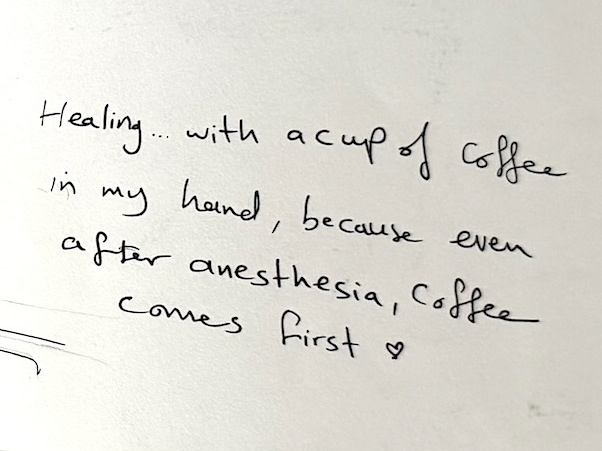 Healing... with a cup of coffee
in my hand, because even
after anesthesia, coffee
comes first ♡